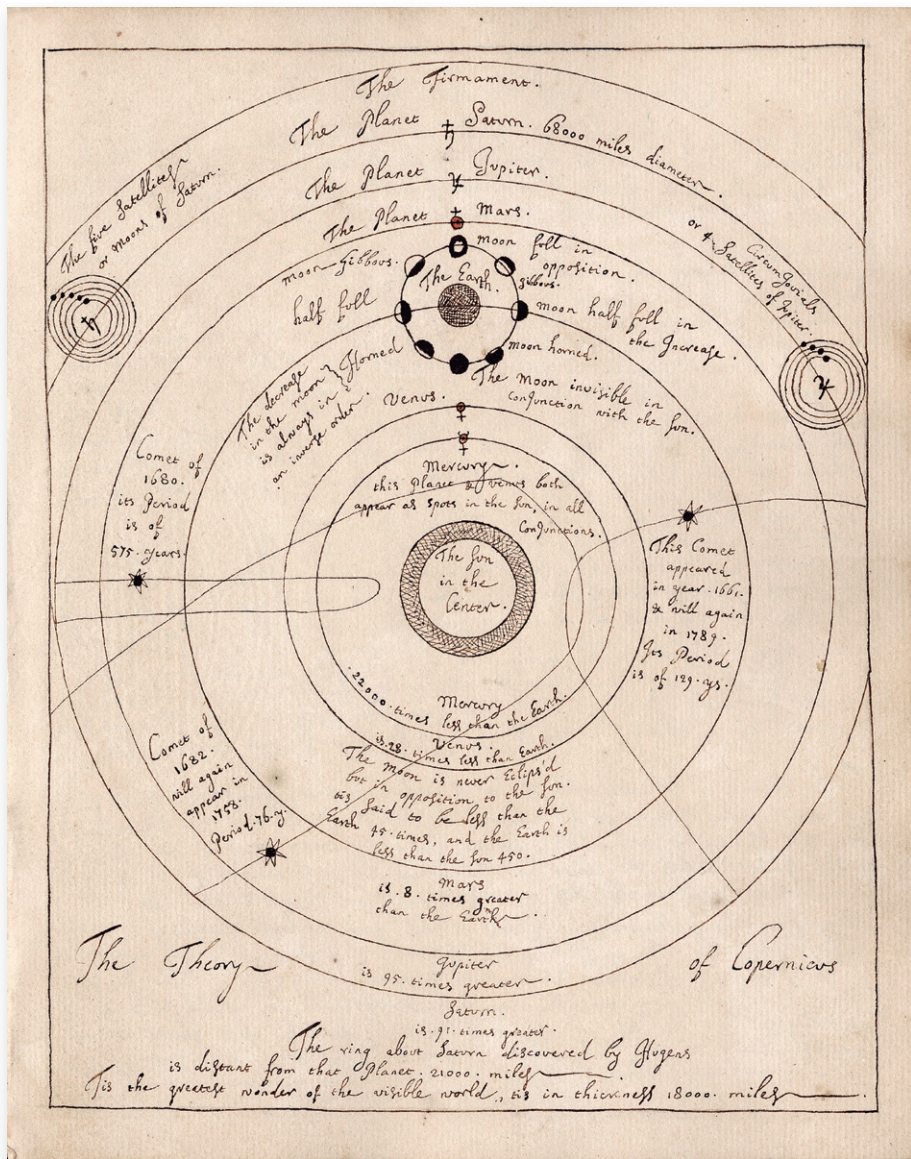 The Firmament.
The Planet ♄ Saturn. 68000 miles diameter.
The Planet ♃ Jupiter.
The Planet Mars.
The five Satellites
or moons of Saturn.
♄
Circumjovials
or 4 Satellites of Jupiter.
♃
moon full in
opposition.
moon gibbous.
gibbous.
The Earth.
half full
moon half full in
the Increase.
moon horned.
Horned
The decrease
in the moon
is always in
an inverse order.
The Moon invisible in
Conjunction with the sun.
Venus.
♀
☿
Mercury.
this Planet & Venus both
appear as spots in the sun, in all
Conjunctions.
The sun
in the
Center.
Comet of
1680.
its Period
is of
575. years.
This Comet
appeared
in year. 1661.
& will again
in 1789.
Its Period
is of 129. ys.
Comet of
1682.
will again
appear in
1758.
Period. 76. y.
Mercury
.22000. times less than the Earth.
Venus.
is. 28. times less than Earth.
The Moon is never Eclips'd
but in opposition to the sun.
tis said to be less than the
Earth 45. times, and the Earth is
less than the sun 450.
Mars
is. 8. times greater
than the Earth.
Jupiter
is 95. times greater.
Saturn.
is. 91. times greater.
The Theory of Copernicus
The ring about Saturn discovered by Hugens
is distant from that Planet. 21000. miles.
Tis the greatest wonder of the visible world, tis in thickness 18000. miles.